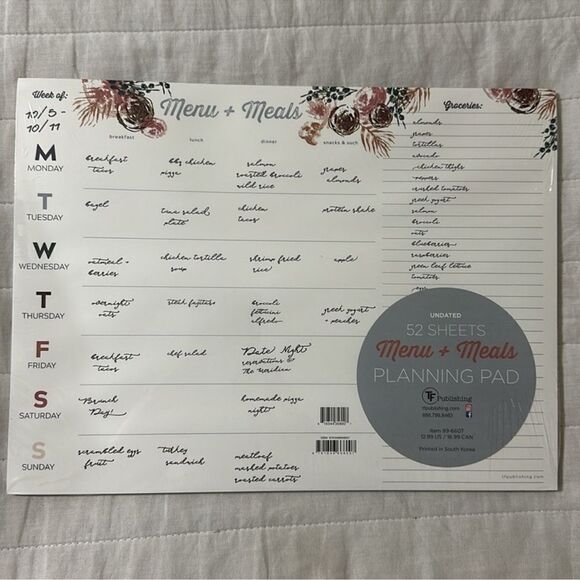 Week of:
Menu + Meals
Groceries:
10/5 -
10/11
breakfast
lunch
dinner
snacks & such
M
MONDAY
breakfast
tacos
bbq chicken
pizza
salmon
roasted broccoli
wild rice
grapes
almonds
T
TUESDAY
bagel
tuna salad
plate
chicken
tacos
protein shake
W
WEDNESDAY
oatmeal +
berries
chicken tortilla
soup
shrimp fried
rice
apple
T
THURSDAY
overnight
oats
steak fajitas
broccoli
fettuccine
alfredo
greek yogurt
+ peaches
F
FRIDAY
breakfast
tacos
chef salad
Date Night
reservations @
The Meridian
S
SATURDAY
Brunch
Day!
homemade pizza
night
S
SUNDAY
scrambled eggs
fruit
turkey
sandwich
meatloaf
mashed potatoes
roasted carrots
almonds
grapes
tortillas
avocado
chicken thighs
peppers
crushed tomatoes
greek yogurt
salmon
broccoli
oats
blueberries
raspberries
green leaf lettuce
tomatoes
eggs
UNDATED
52 SHEETS
Menu + Meals
PLANNING PAD
TF
Publishing
tfpublishing.com
Item 99-6607
12.99 US / 16.99 CAN
Printed in South Korea
tfpublishing.com